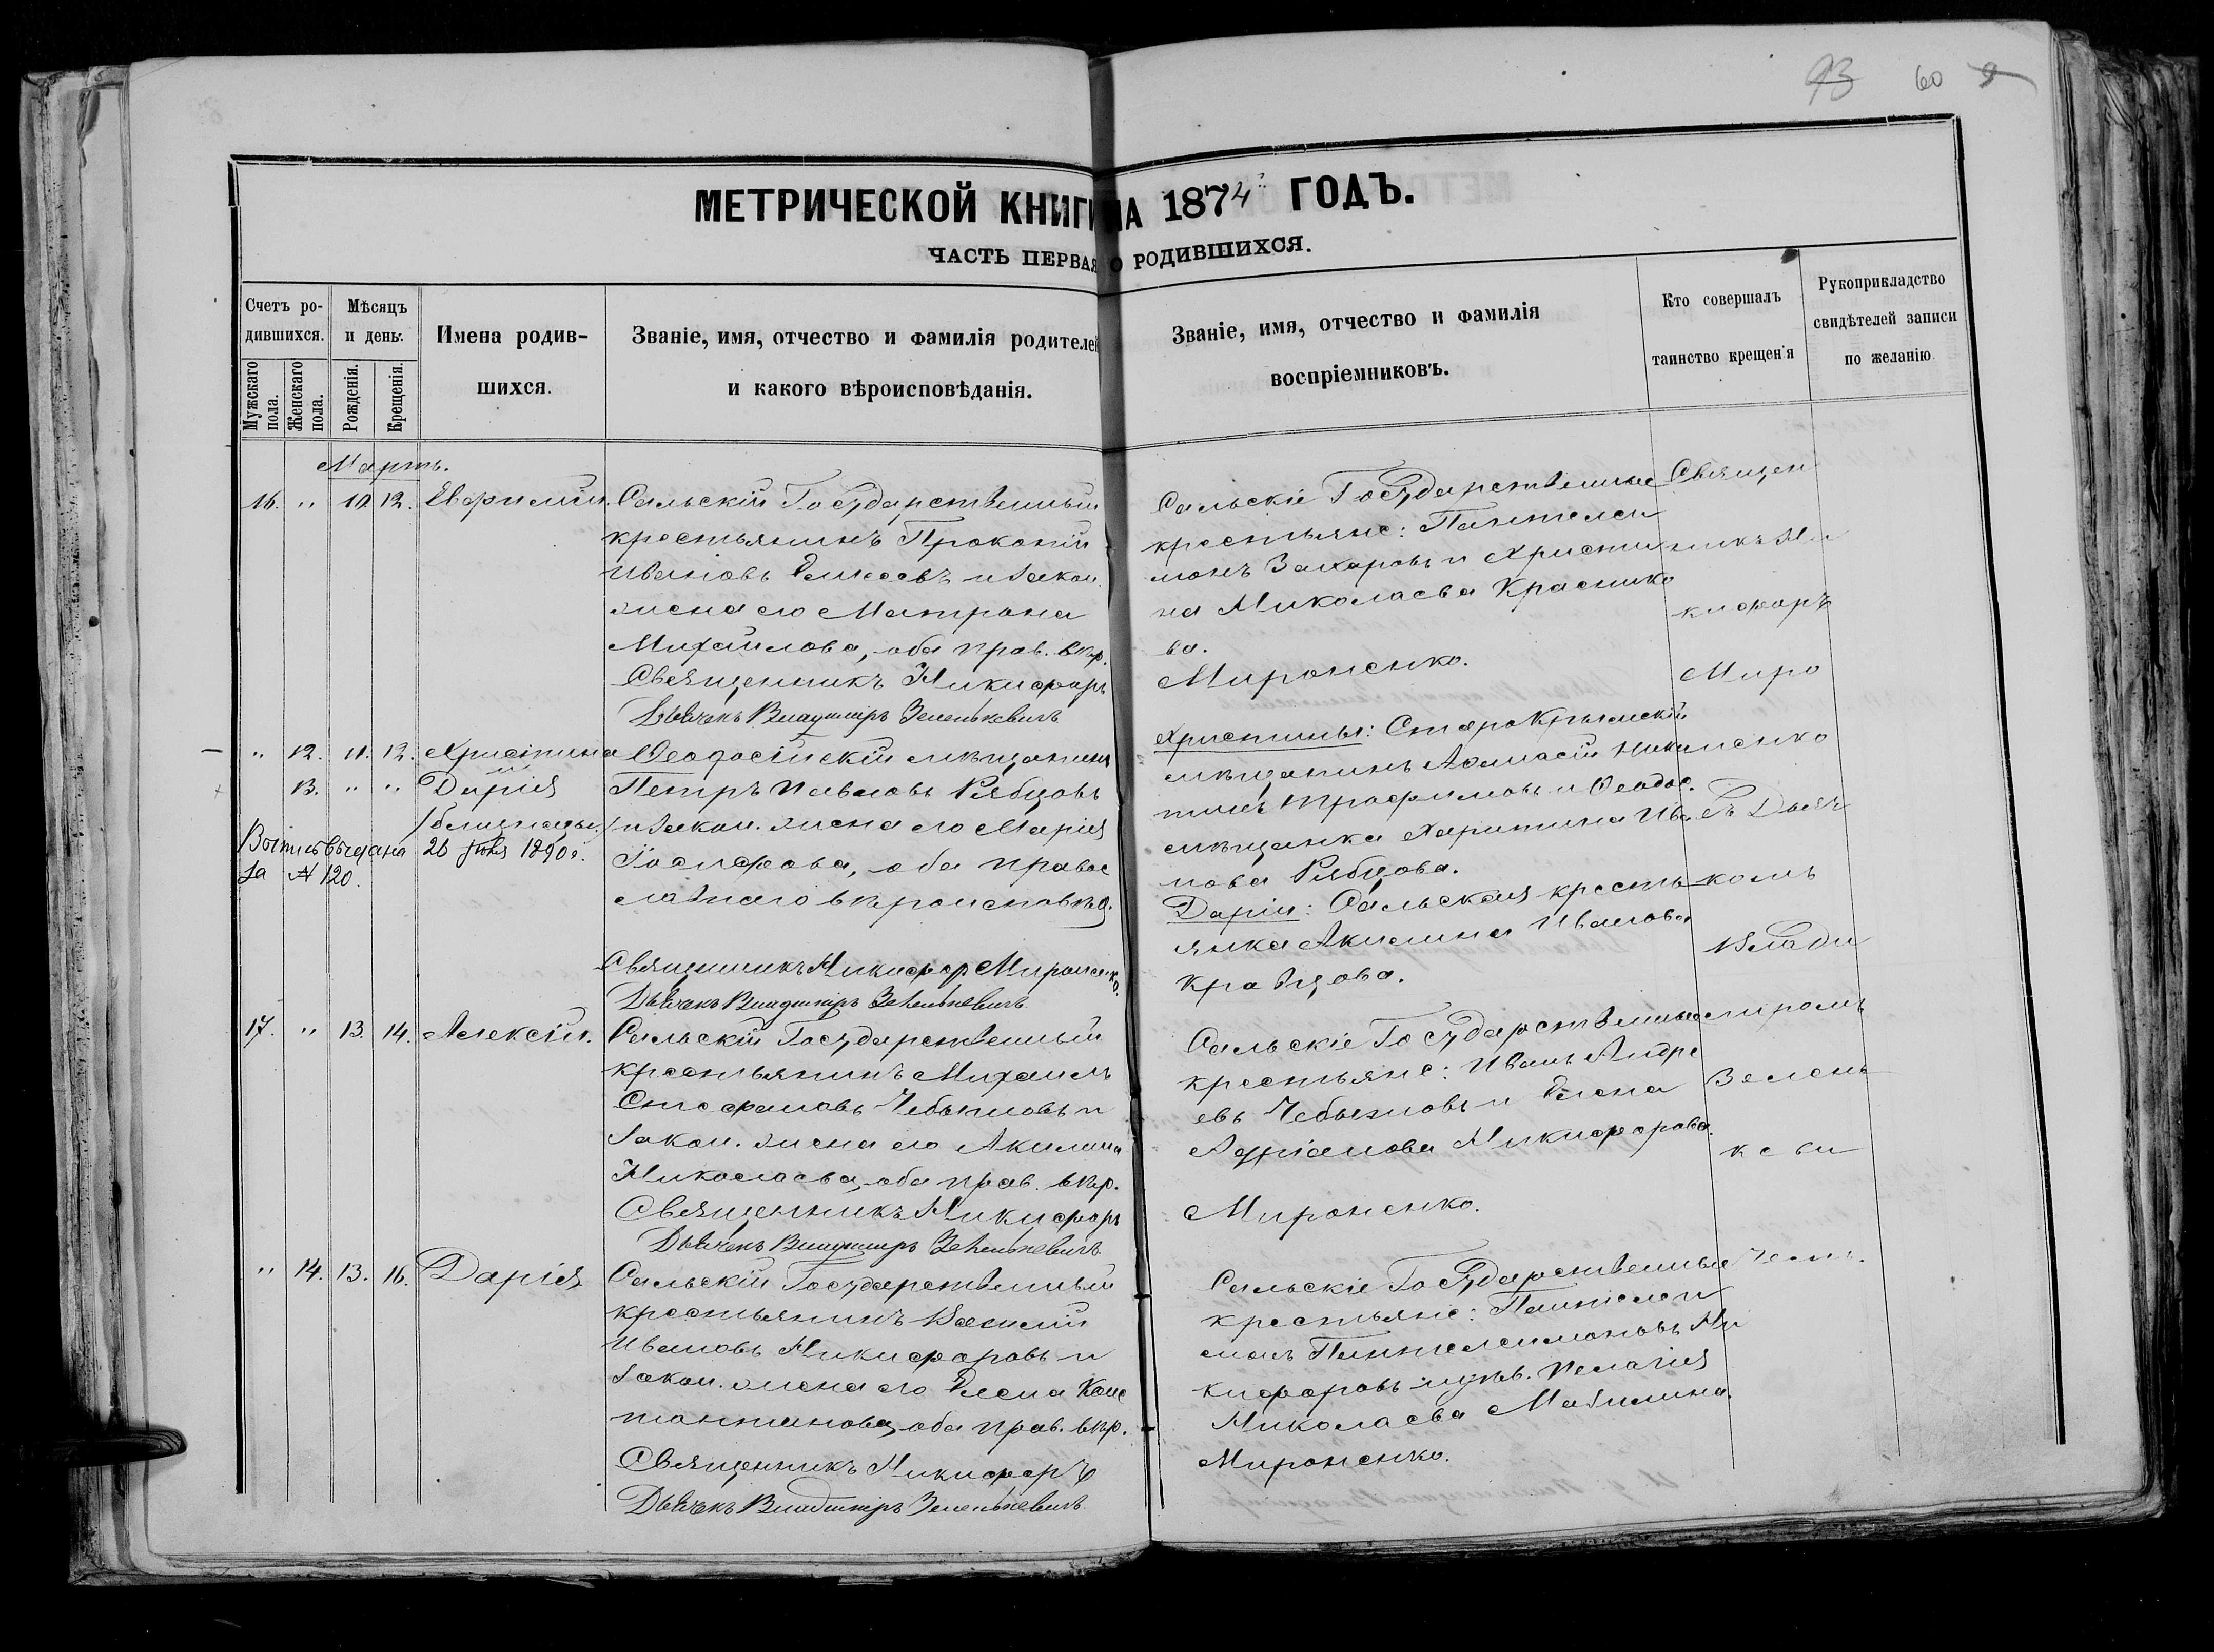 93 60
МЕТРИЧЕСКОЙ КНИГИ НА 1874 ГОДЪ.
ЧАСТЬ ПЕРВАЯ О РОДИВШИХСЯ.
Счетъ родившихся.
Мужскаго пола.
Женскаго пола.
Мѣсяцъ и день.
Рожденія.
Крещенія.
Имена родившихся.
Званіе, имя, отчество и фамилія родителей
и какого вѣроисповѣданія.
Званіе, имя, отчество и фамилія
воспріемниковъ.
Кто совершалъ
таинство крещенія
Рукоприкладство
свидѣтелей записи
по желанію
Мартъ.
16. " 10. 12. Евфимій.
Сальскій Государственный
крестьянинъ Прокопій
Ивановъ и закон.
жена его Матрона
Михайлова, оба прав. вѣр.
Священникъ Никифоръ
Дьячекъ Владиміръ Зеленкевичъ
Сальскіе Государственные
крестьяне: Пантелеи
монъ Захаровъ и Христи
на Николаева Краснико
ва.
Мироненко.
" 12. 11. 12. Христина
13. " " Дарія
/близнецы/
Выпись выдана 26 Іюля 1890 г.
за № 120.
Ѳеодосійскій мѣщанинъ
Петръ Павловъ Рябцовъ
и закон. жена его Марія
Іосифова, оба правос
лавнаго вѣроисповѣд.
Священникъ Никифоръ Мироненко.
Дьячекъ Владиміръ Зеленкевичъ
Христины: СтароКрымскій
мѣщанинъ
Трофимовъ и Ѳеодос.
мѣщанка Харитина Ива
нова Рябцова.
Даріи: Сальская кресть
янка Акилина Иванова
Кравцова.
17. " 13. 14. Алексій.
Сальскій Государственный
крестьянинъ Михаилъ
Стефановъ Чебыкновъ и
закон. жена его Акилина
Николаева, оба прав. вѣр.
Священникъ Никифоръ
Дьячекъ Владиміръ Зеленкевичъ
Сальскіе Государственные
крестьяне: Иванъ Андре
евъ Чебыкновъ и Елена
Адріанова Никифорова.
Мироненко.
" 14. 13. 16. Дарія
Сальскій Государственный
крестьянинъ Василій
Ивановъ Никифоровъ и
закон. жена его Елена Конс
тантинова, оба прав. вѣр.
Священникъ Никифоръ
Дьячекъ Владиміръ Зеленкевичъ
Сальскіе Государственные
крестьяне: Пантелеи
монъ Пантелеимоновъ Ни
кифоровъ и Пелагія
Николаева
Мироненко.
Священ
никъ Ни
кифоръ
Миро
ненко
съ Дьяч
комъ
Влади
миромъ
Зелень
кеви
чемъ.